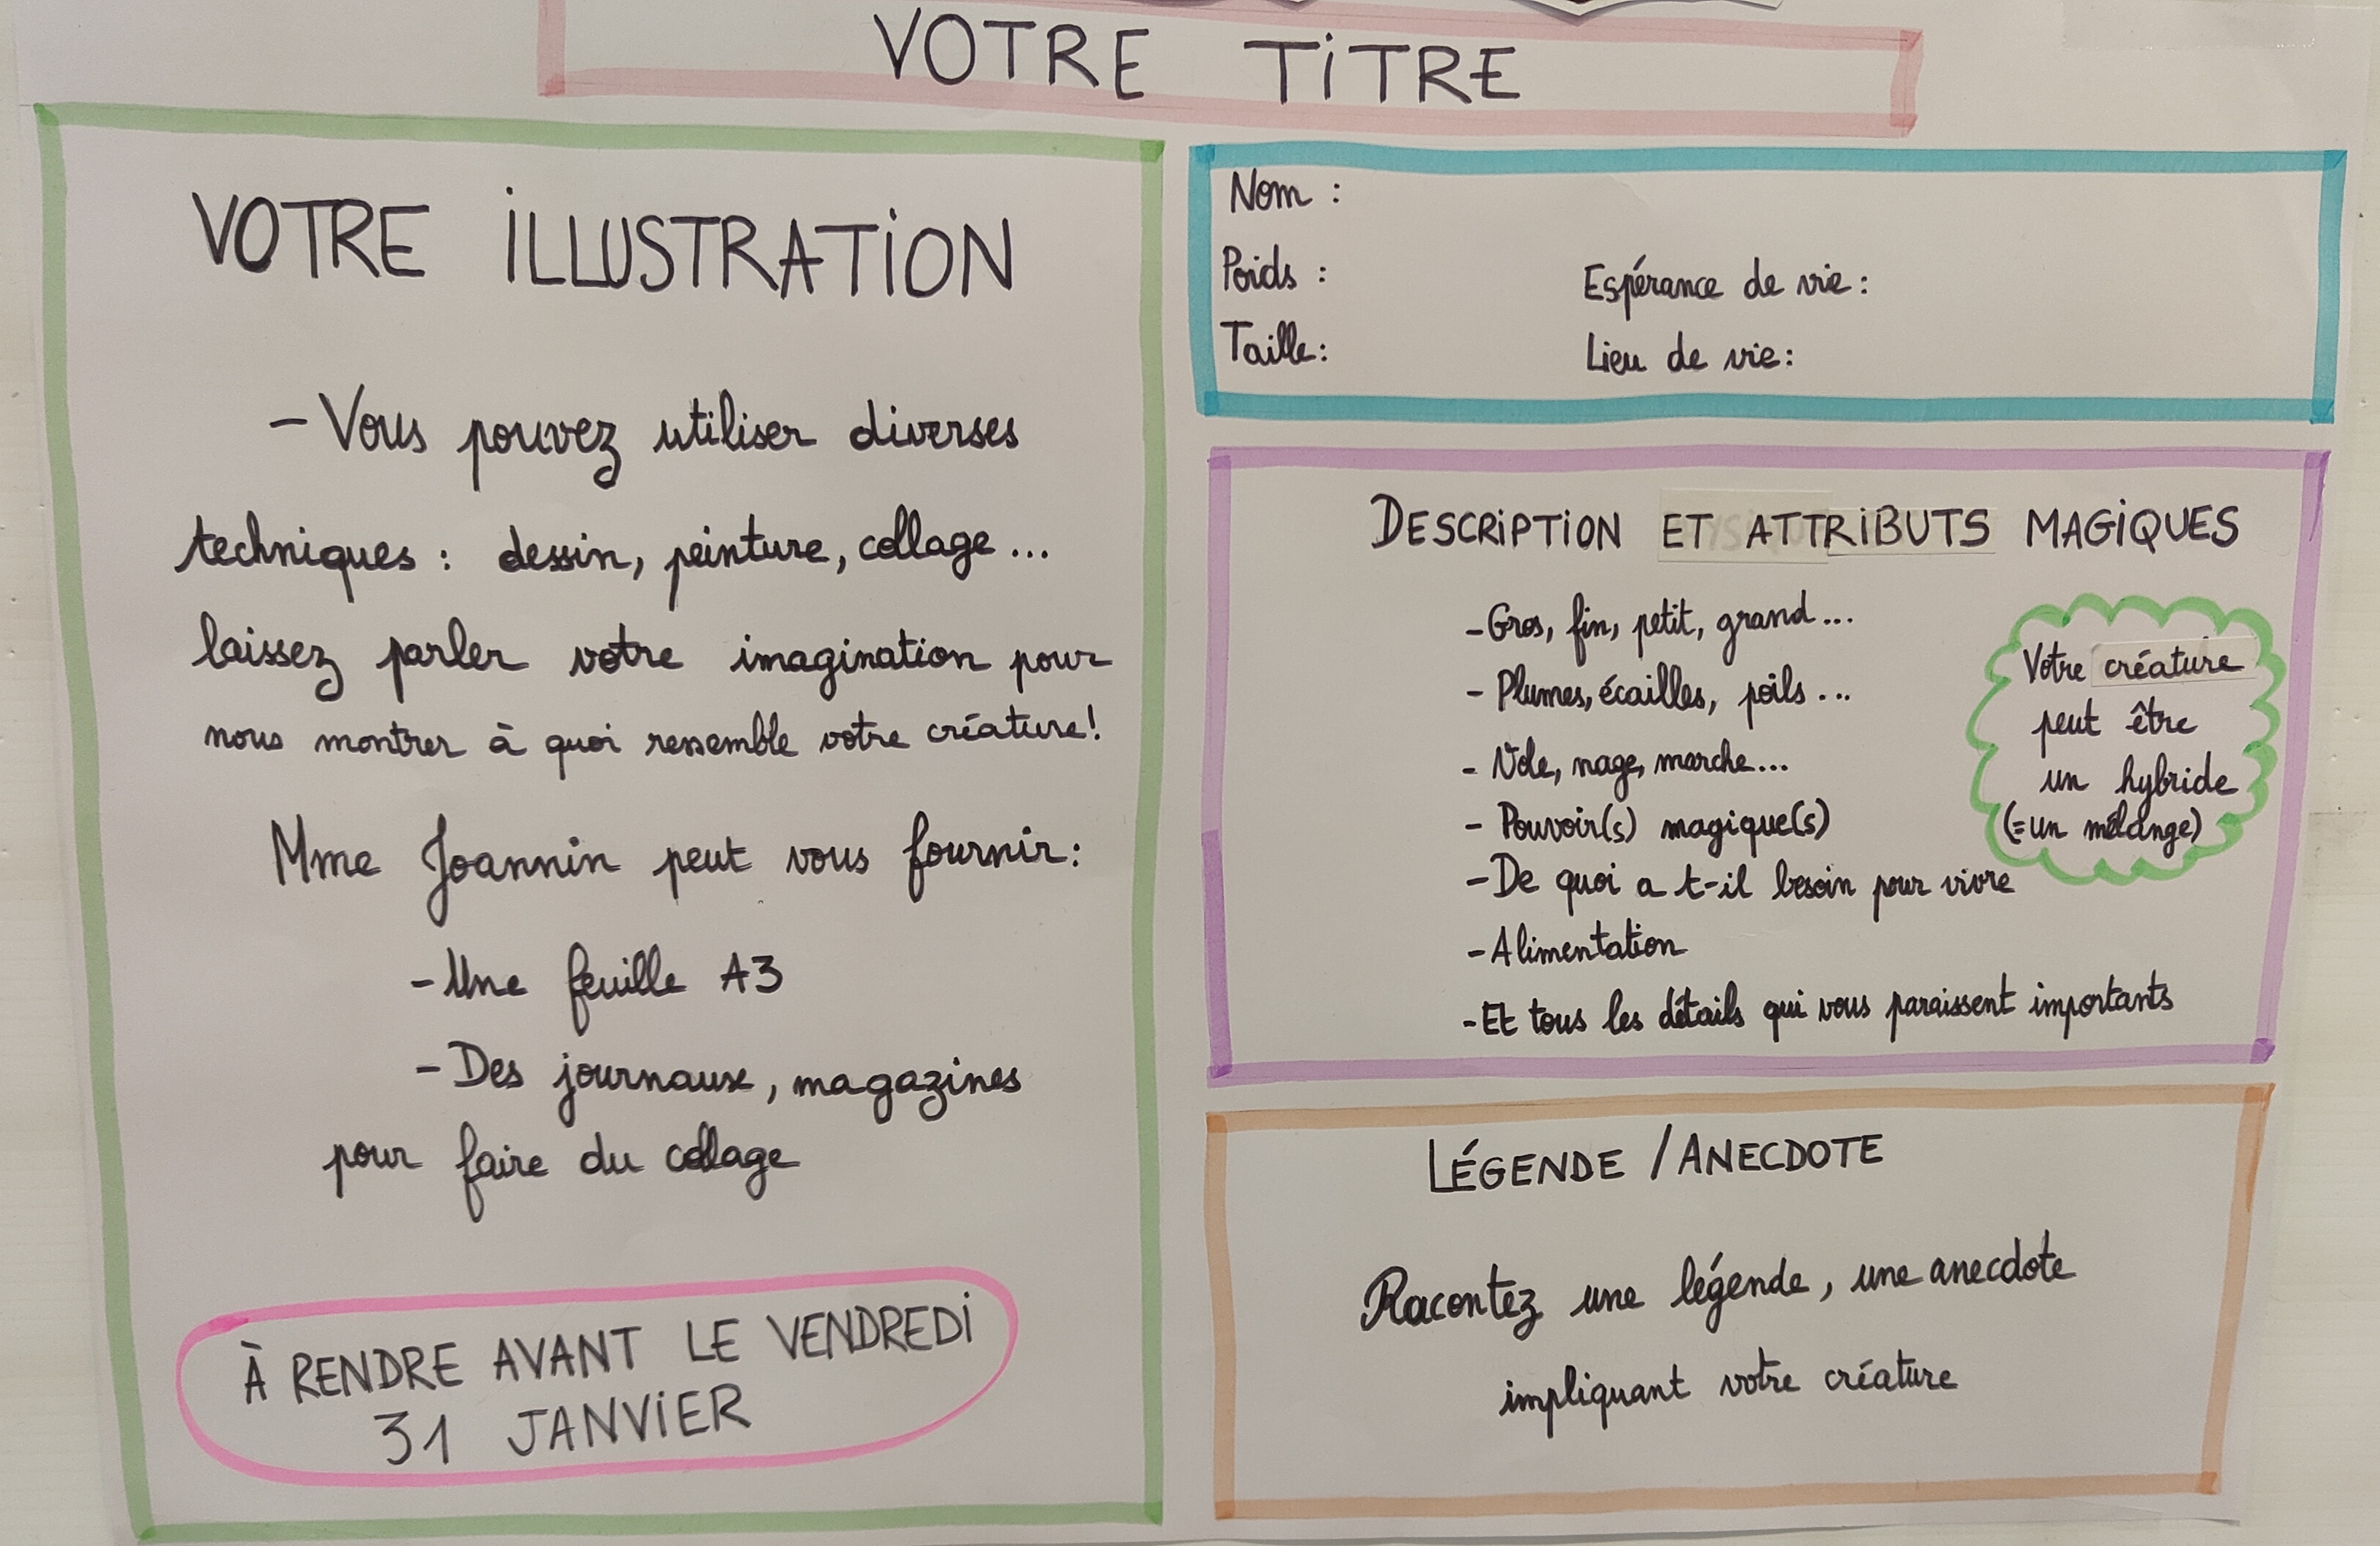 VOTRE TITRE
VOTRE ILLUSTRATION
- Vous pouvez utiliser diverses
techniques : dessin, peinture, collage ...
laissez parler votre imagination pour
nous montrer à quoi ressemble votre créature!
Mme Joannin peut vous fournir:
- Une feuille A3
- Des journaux, magazines
pour faire du collage
À RENDRE AVANT LE VENDREDI
31 JANVIER
Nom :
Poids :
Taille:
Espérance de vie:
Lieu de vie:
DESCRIPTION ET ATTRIBUTS MAGIQUES
- Gros, fin, petit, grand...
- Plumes, écailles, poils ...
- Vole, nage, marche...
- Pouvoir(s) magique(s)
- De quoi a t-il besoin pour vivre
- Alimentation
- Et tous les détails qui vous paraissent importants
Votre créature
peut être
un hybride
(= un mélange)
LÉGENDE / ANECDOTE
Racontez une légende, une anecdote
impliquant votre créature